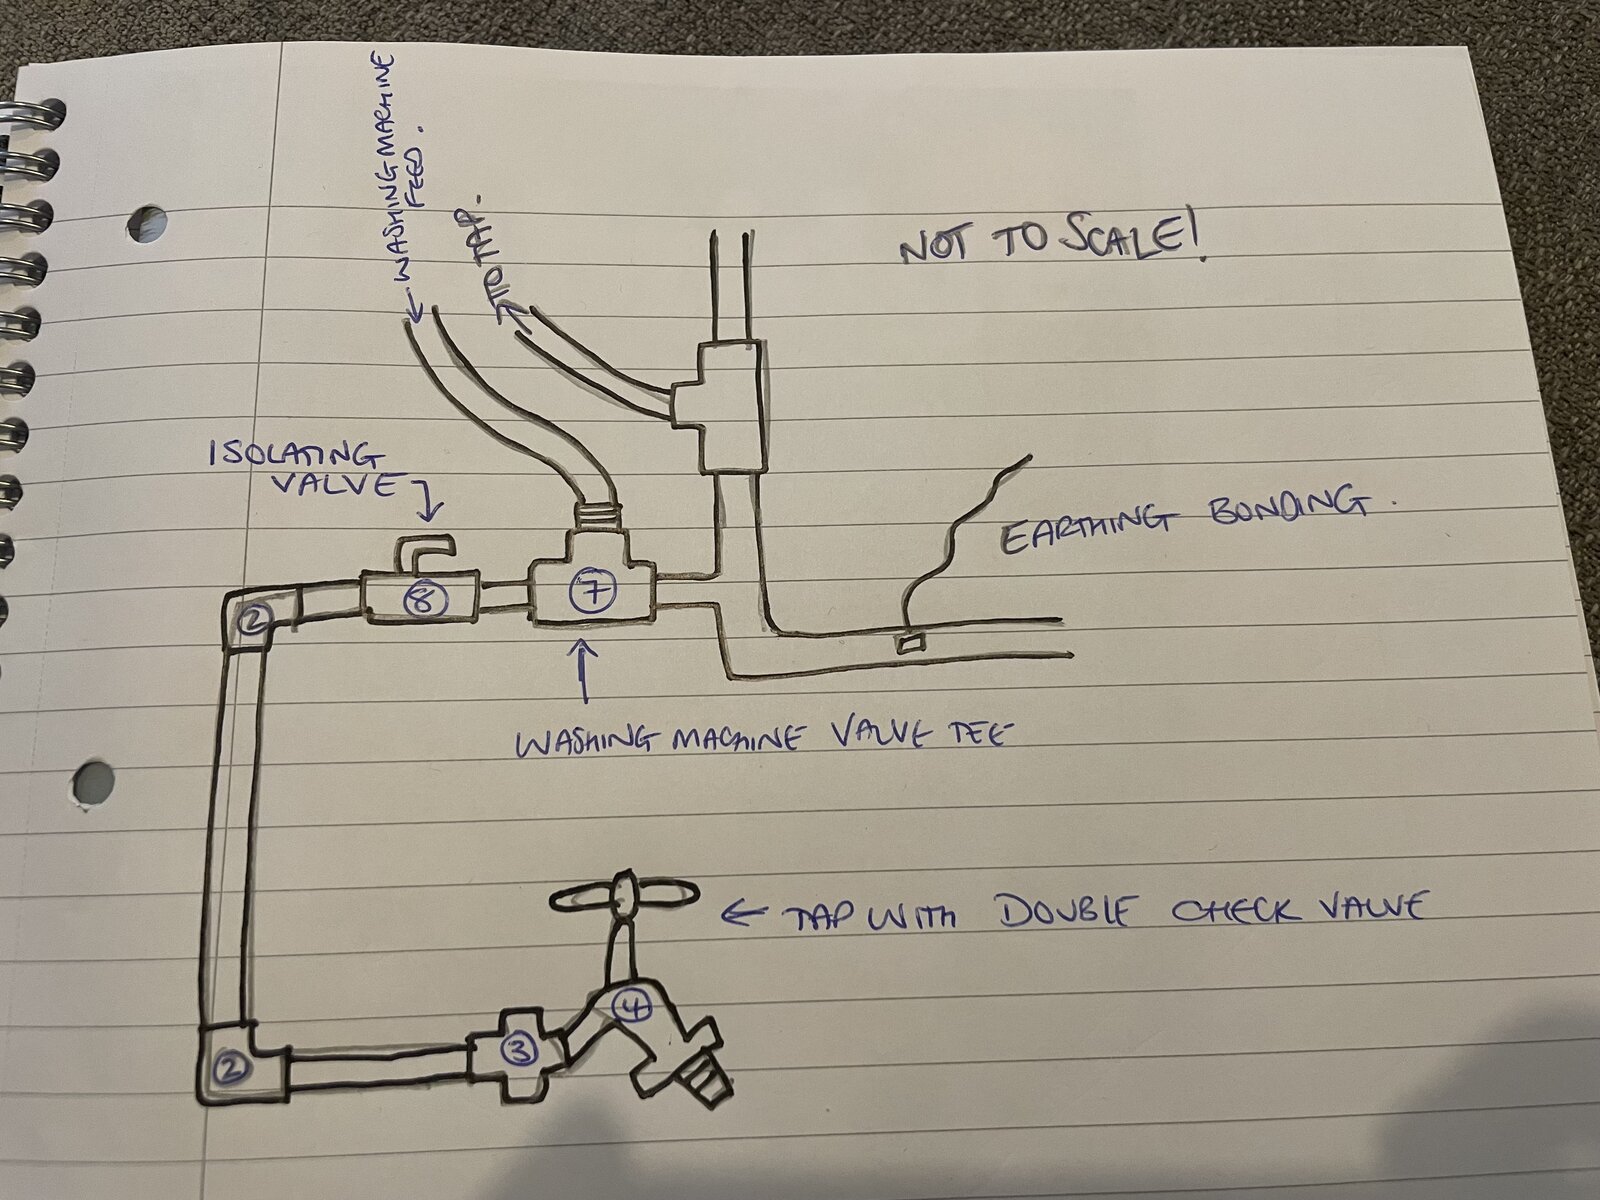 ← WASHING MACHINE
FEED.
TO TAP.
NOT TO SCALE!
ISOLATING
VALVE
EARTHING BONDING.
8
7
2
WASHING MACHINE VALVE TEE
← TAP WITH DOUBLE CHECK VALVE
4
3
2